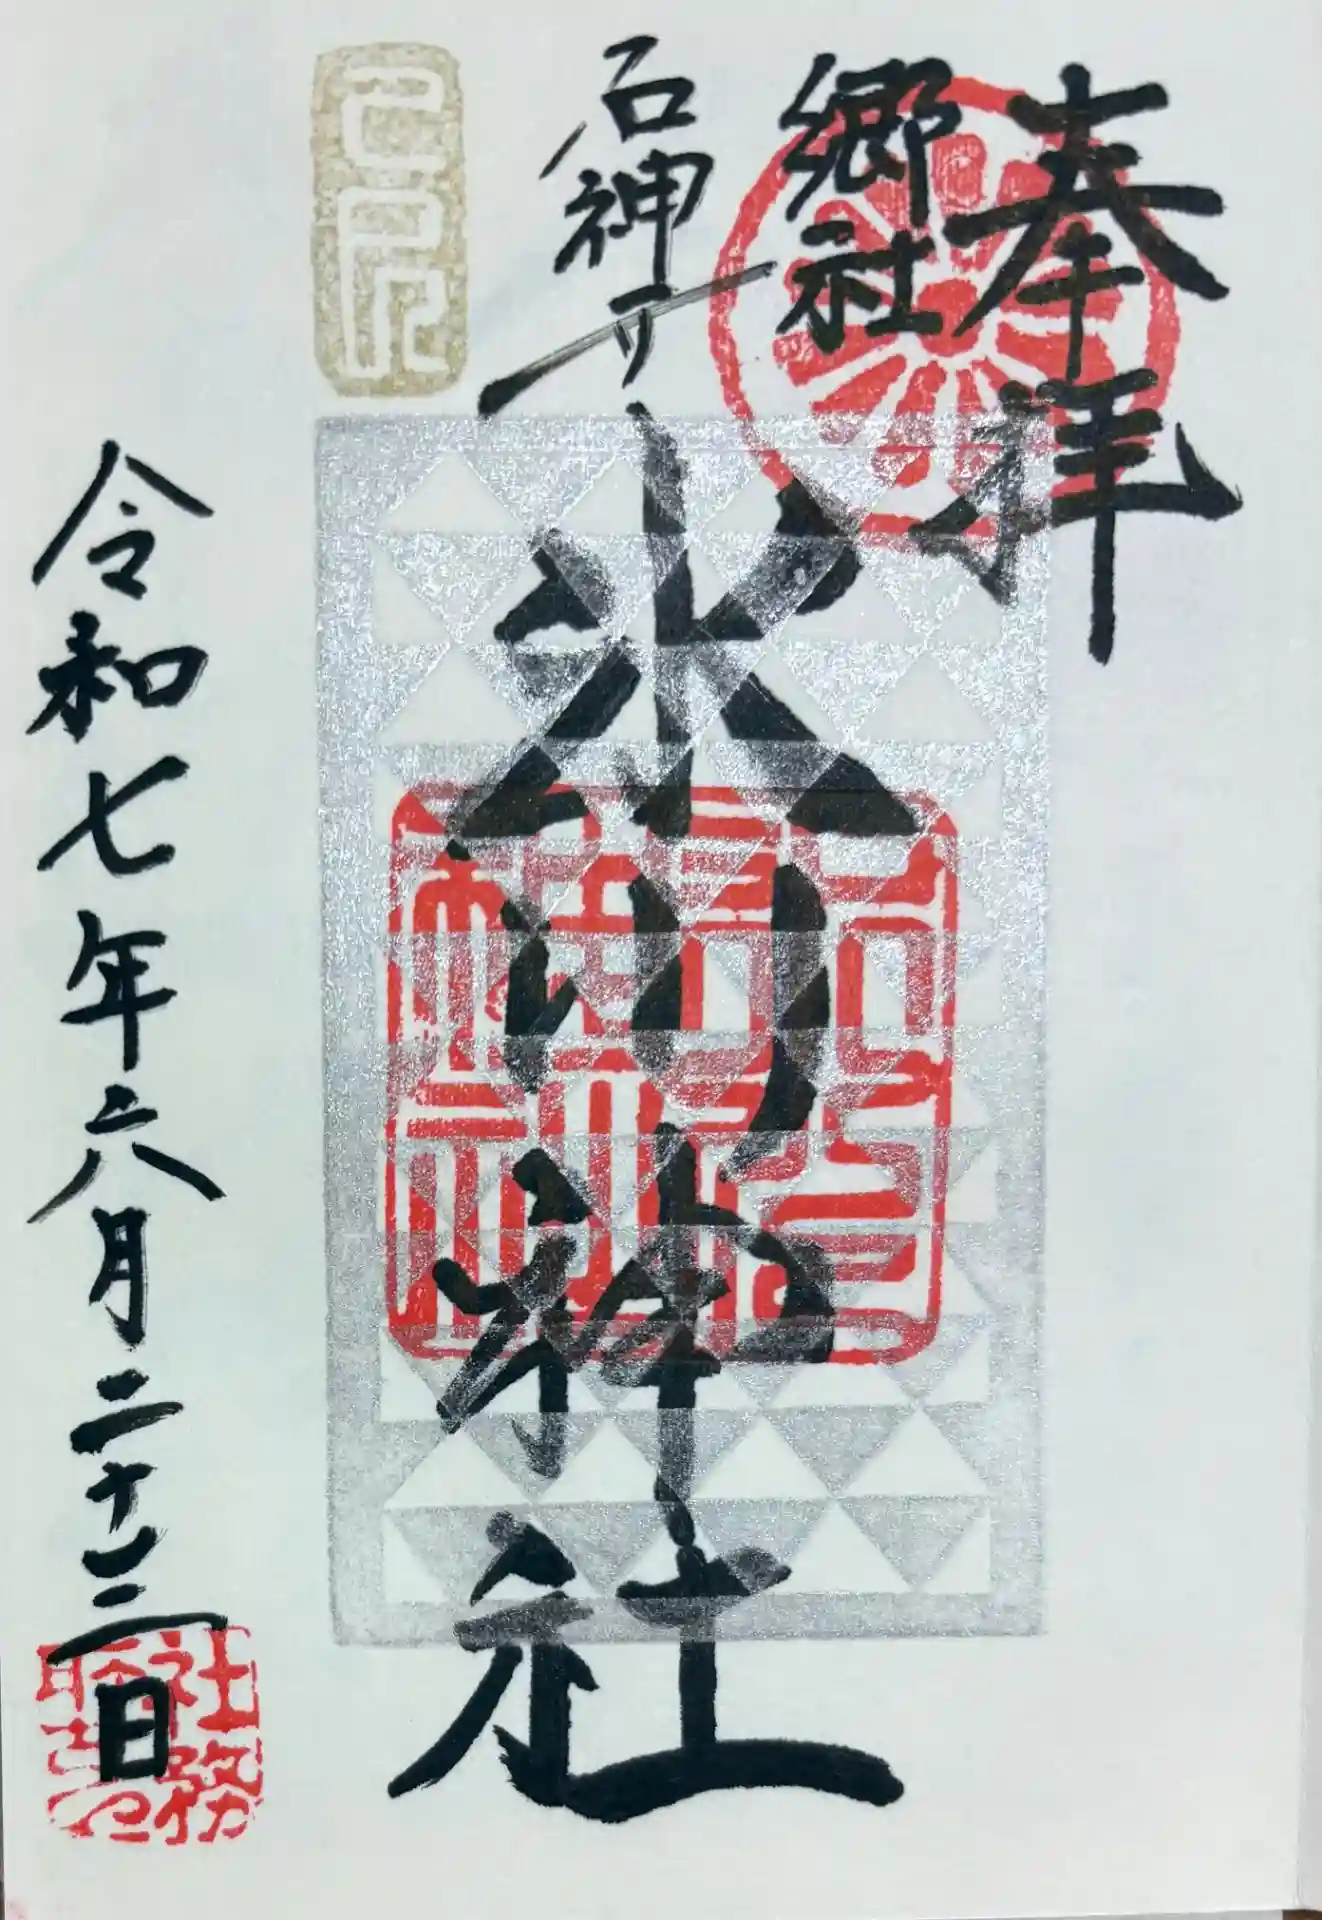 奉拝
郷社
石神井
氷川神社
令和七年六月二十三日
社務